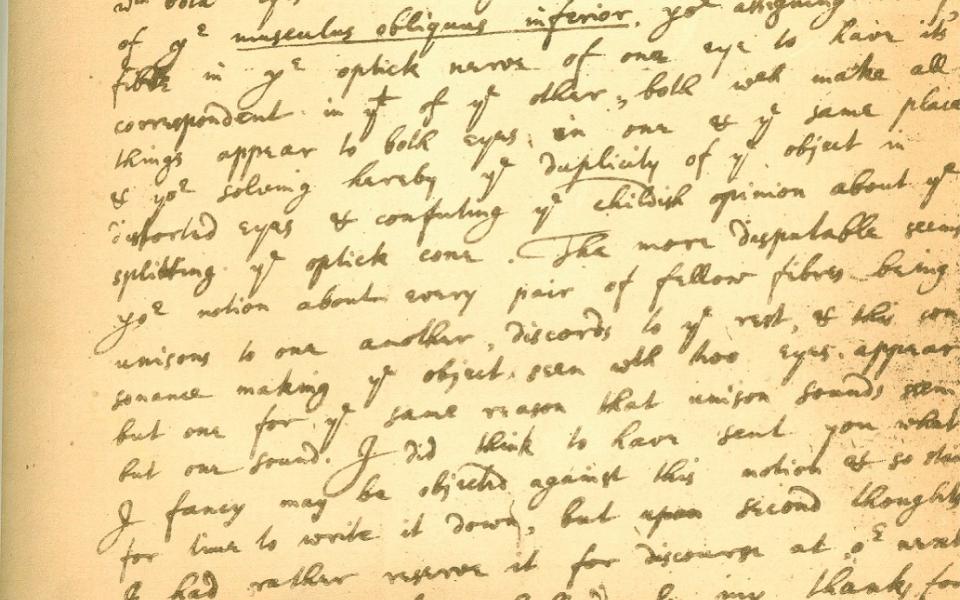 wth both
of ye musculus obliquus inferior, yor assigning
fibre in ye optick nerve of one eye to have its
correspondent in yt of ye other, both wch make all
things appear to both eyes in one & ye same place
& yor solving hereby ye duplicity of ye object in
distorted eyes & confuting ye childish opinion about ye
splitting ye optick cone. The more disputable seems
yor notion about every pair of fellow fibres being
unisons to one another, discords to ye rest, & this con
sonance making ye object seen wth two eyes appear
but one for ye same reason that unison sounds seem
but one sound. I did think to have sent you what
I fancy may be objected against this notion & so
for time to write it down, but upon second thoughts
I had rather reserve it for discourse at or next
my thanks for